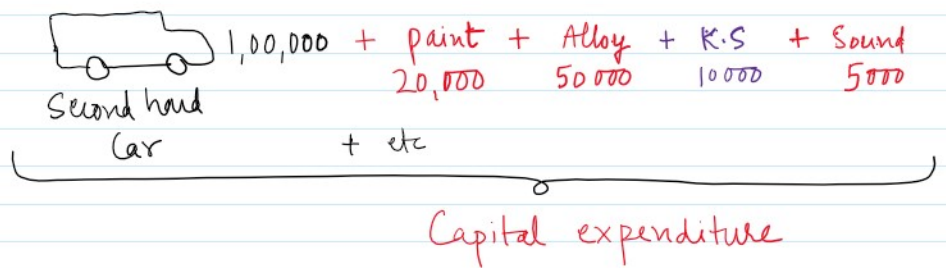 1,00,000 + paint + Alloy + K.S + Sound
20,000 50000 10000 5000
Second hand
Car + etc
Capital expenditure